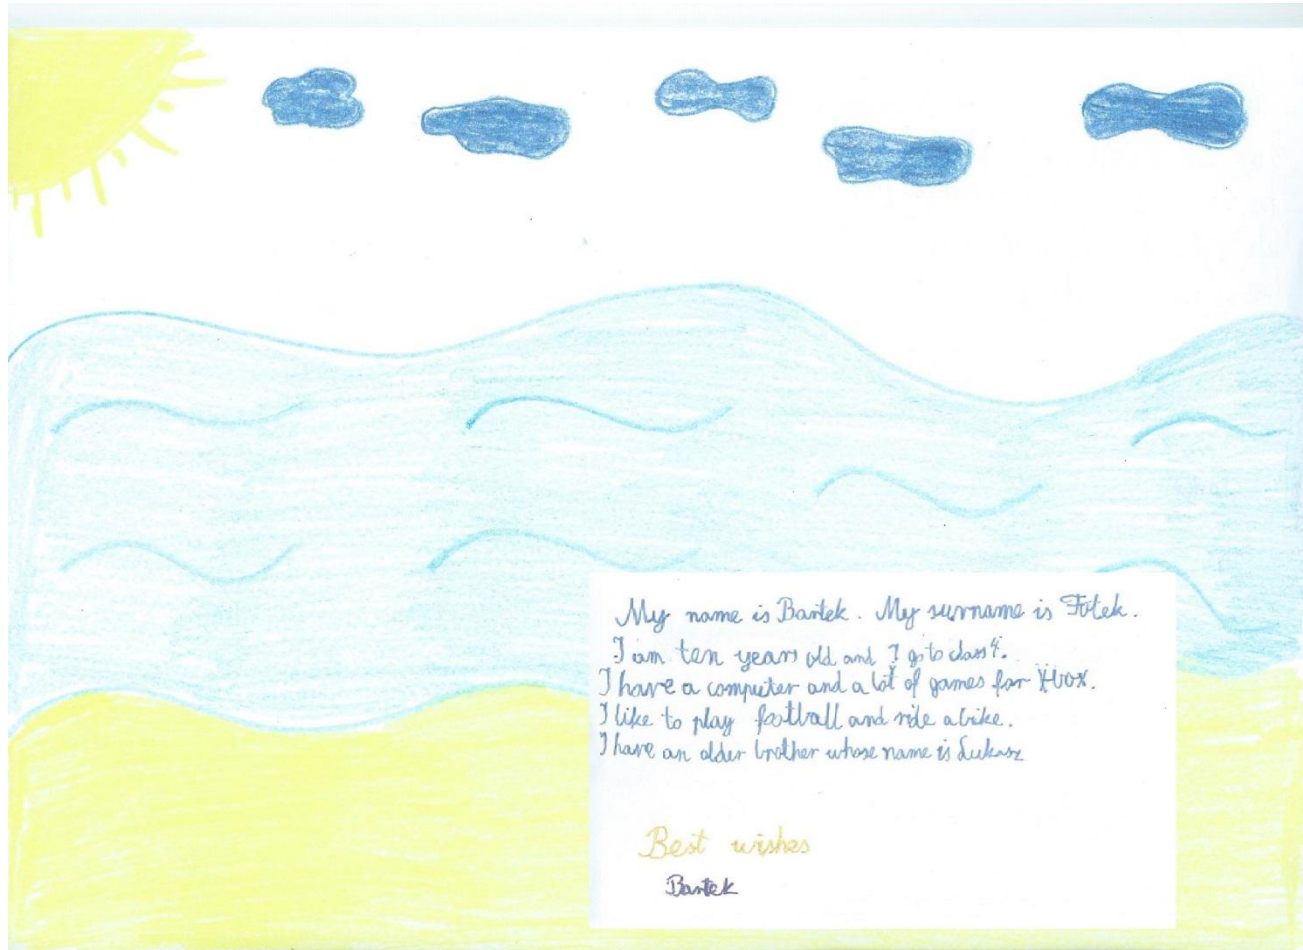 My name is Bartek. My surname is Fotek.
I am ten years old and I go to class 4.
I have a computer and a lot of games for Xbox.
I like to play football and ride a bike.
I have an older brother whose name is Łukasz
Best wishes
Bartek